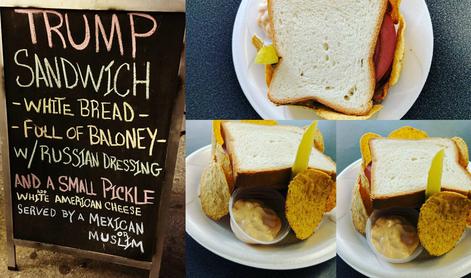 TRUMP
SANDWICH
-WHITE BREAD-
-FULL OF BALONEY-
W/RUSSIAN DRESSING
AND A SMALL PICKLE
AND
WHITE AMERICAN CHEESE
SERVED BY A MEXICAN
OR
MUSLIM